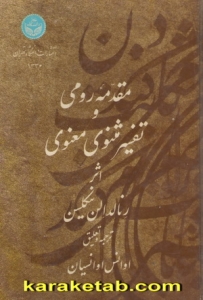 انتشارات دانشگاه تهران
مقدمه رومی
و
تفسیر مثنوی معنوی
اثر
رنالد الن نیکلسن
ترجمه و تعلیق
اوانس اوانسیان
karaketab.com